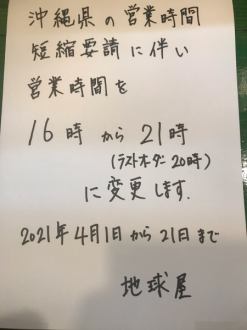 沖縄県の営業時間
短縮要請に伴い
営業時間を
16時から21時
(ラストオーダー20時)
に変更します.
2021年4月1日から21日まで
地球屋